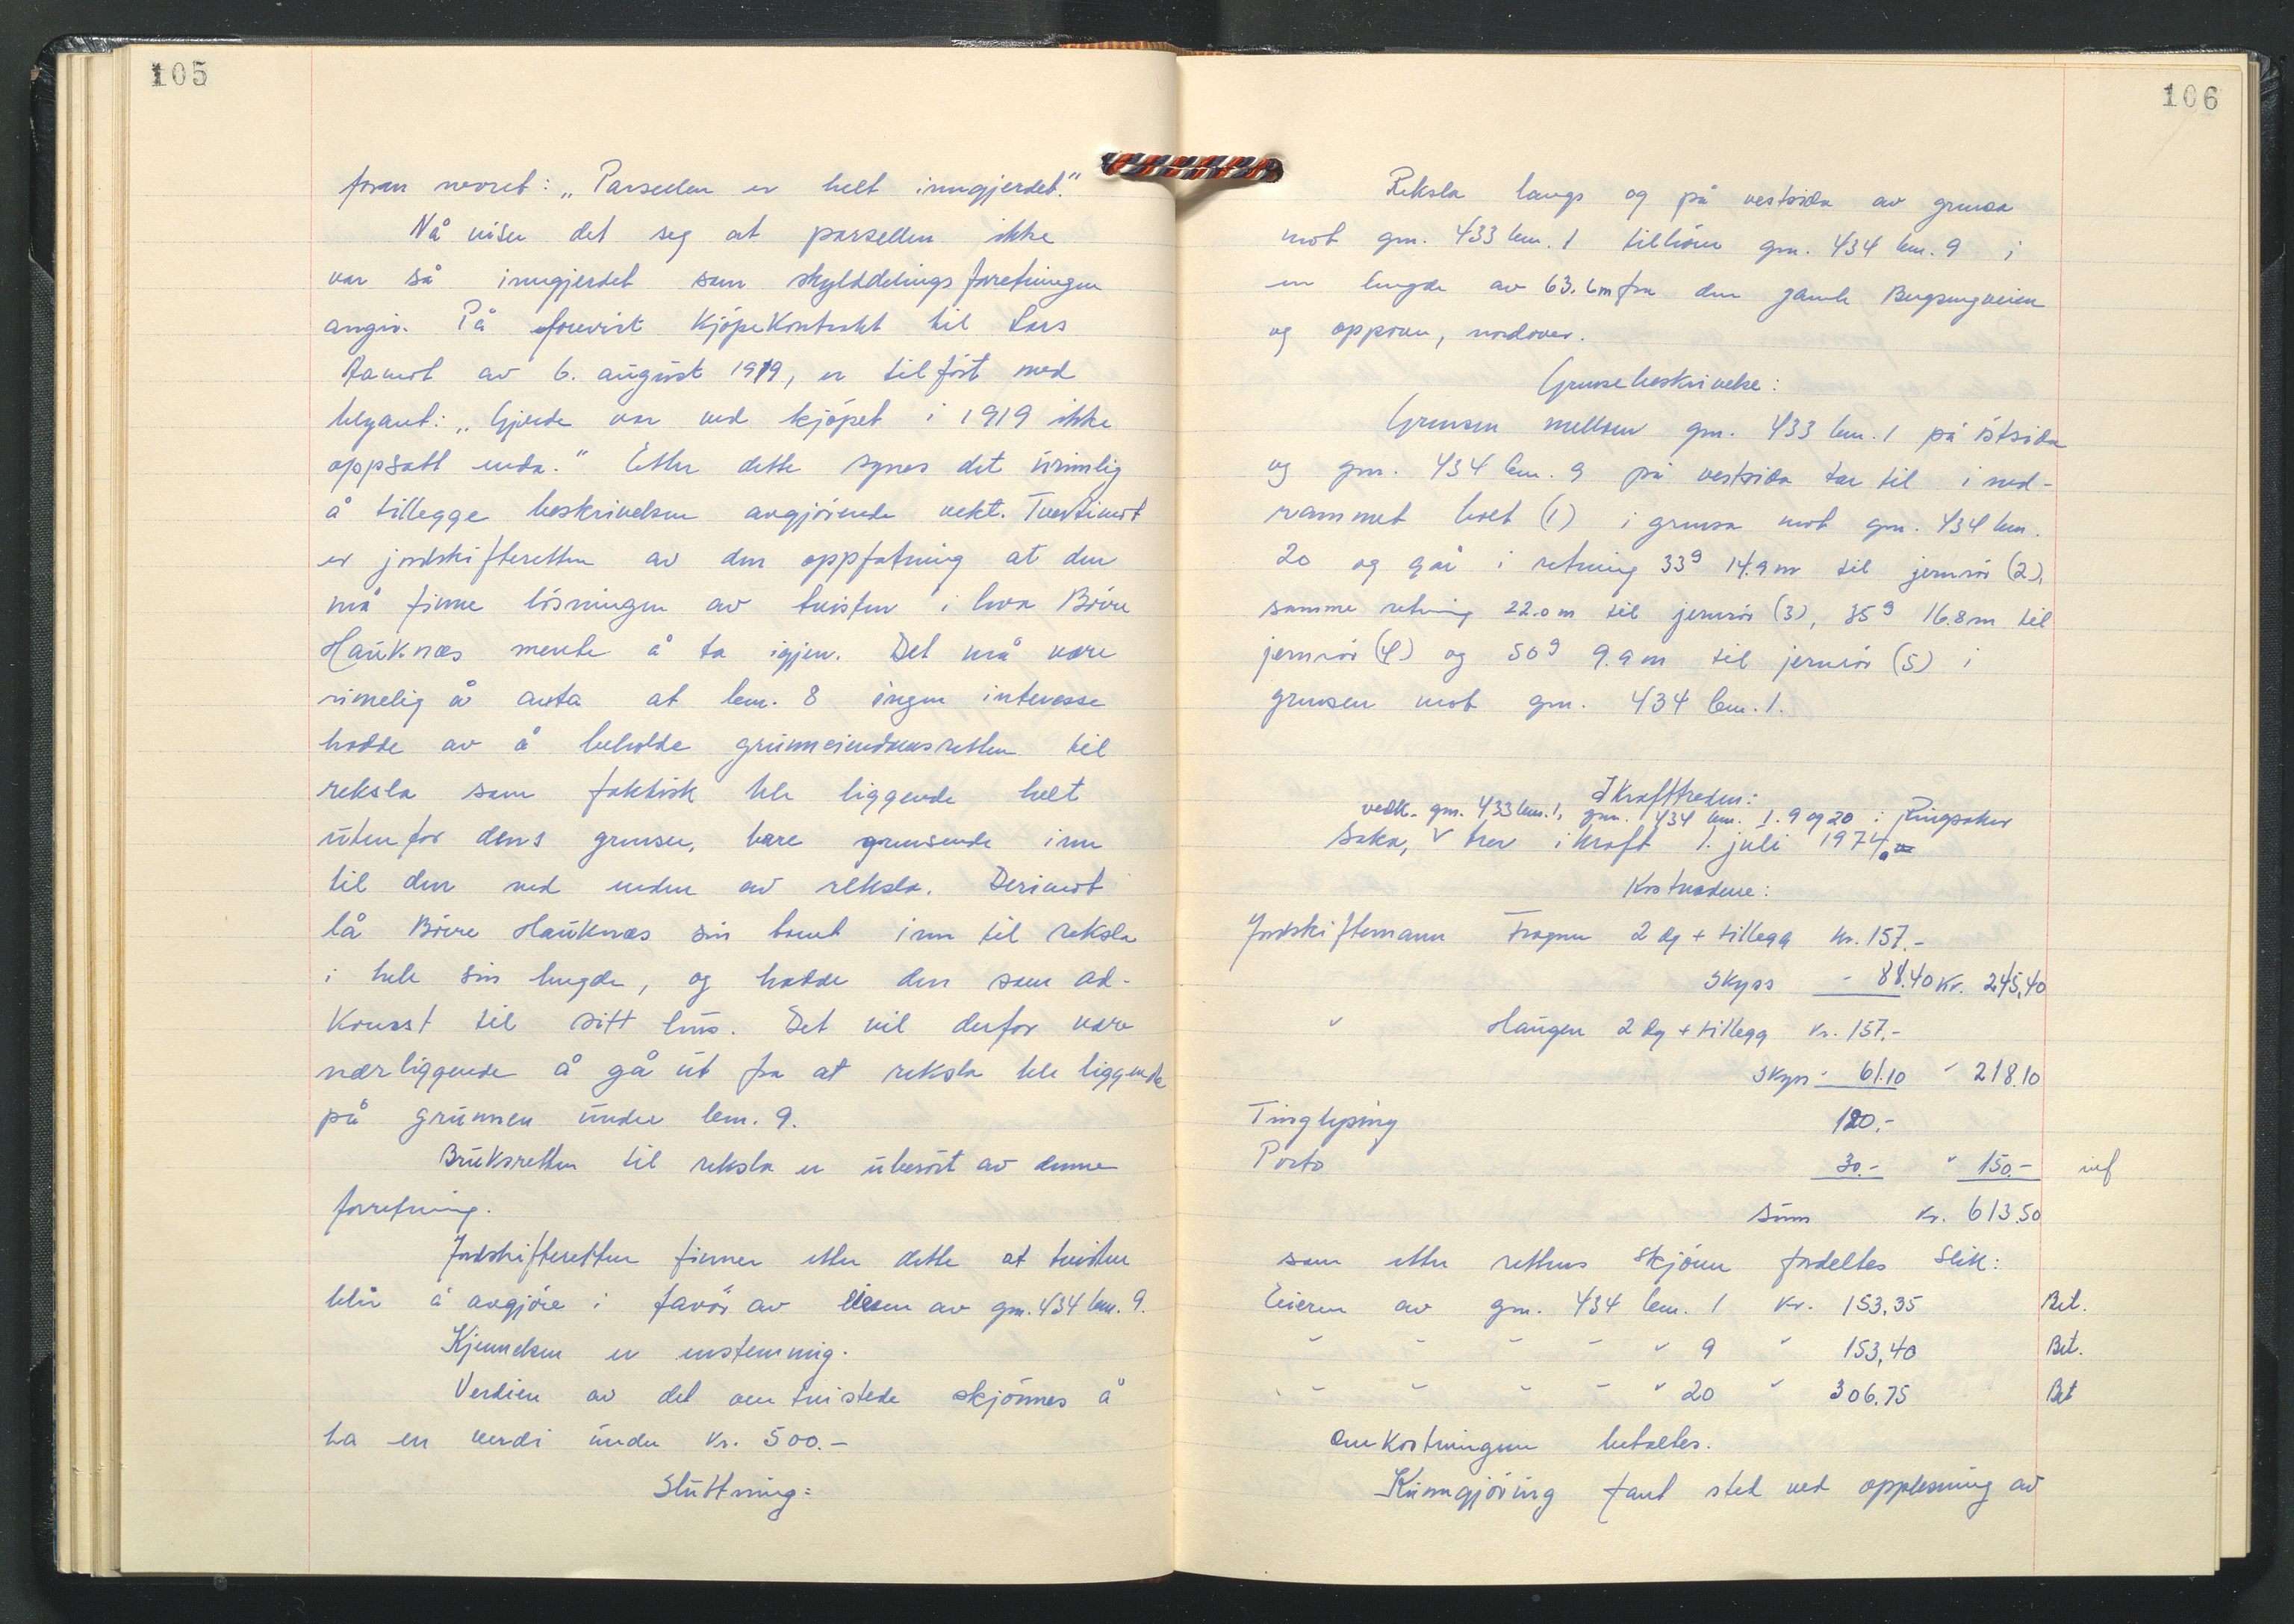 105
foran nevnt: „Parsellen er helt inngjerdet."
Nå viser det seg at parsellen ikke
var så inngjerdet som skylddelingsforretningen
angir. På forevist kjøpekontrakt til Lars
Aamot av 6. august 1919, er tilført med
blyant: „Gjerde var ved kjøpet i 1919 ikke
oppsatt enda." Etter dette synes det urimlig
å tillegge beskrivelsen avgjørende vekt. Tvertimot
er jordskifteretten av den oppfatning at den
må finne løsningen av tvisten i hva Børre
Hauknæs mente å ta igjen. Det må være
rimelig å anta at bnr. 8 ingen interesse
hadde av å beholde grunneiendomsretten til
reksla som faktisk ble liggende helt
utenfor dens grenser, bare grensende inn
til den ved enden av reksla. Derimot
lå Børre Hauknæs sin tomt inn til reksla
i hele sin lengde, og hadde den som ad-
komst til sitt hus. Det vil derfor være
nærliggende å gå ut fra at reksla ble liggende
på grunnen under bnr. 9.
Bruksretten til reksla er uberørt av denne
forretning.
Jordskifteretten finner etter dette at tvisten
blir å avgjøre i favør av eieren av gnr. 434 bnr. 9.
Kjennelsen er enstemmig.
Verdien av det omtvistede skjønnes å
ha en verdi under kr. 500.-
Slutning:
106
Reksla langs og på vestsida av grensa
mot gnr. 433 bnr. 1 tilhører gnr. 434 bnr. 9 i
en lengde av 63.6m fra den gamle Bergsengveien
og oppover, nordover.
Grensebeskrivelse:
Grensen mellom gnr. 433 bnr. 1 på østsida
og gnr. 434 bnr. 9 på vestsida tar til i ned-
rammet bolt (1) i grensa mot gnr. 434 bnr.
20 og går i retning 33g 14.9m til jernrør (2),
samme retning 22.0m til jernrør (3), 35g 16.8m til
jernrør (4) og 50g 9.9m til jernrør (5) i
grensen mot gnr. 434 bnr. 1.
Ikrafttreden:
vedk. gnr. 433 bnr. 1, gnr. 434 bnr. 1. 9 og 20 i Ringsaker
Saka, v trer i kraft 1. juli 1974.
Kostnadene:
Jordskiftemann Frogner 2 dg + tillegg kr. 157.-
Skyss - 88.40 kr. 245,40
" Haugen 2 dg + tillegg kr. 157.-
Skyss - 61.10 " 218.10
Tinglysing 120.-
Porto 30.- " 150.- inf
Sum kr. 613.50
som etter rettens skjønn fordeltes slik:
Eieren av gnr. 434 bnr. 1 kr. 153.35 Bet.
" " " " " 9 " 153,40 Bet.
" " " " " 20 " 306.75 Bet
Omkostningene betaltes.
Kunngjøring fant sted ved opplesning av